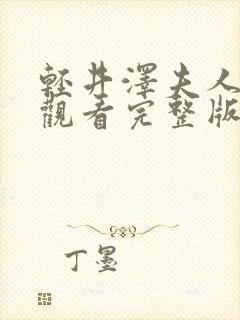 輕井澤夫人
觀看完整版
丁墨